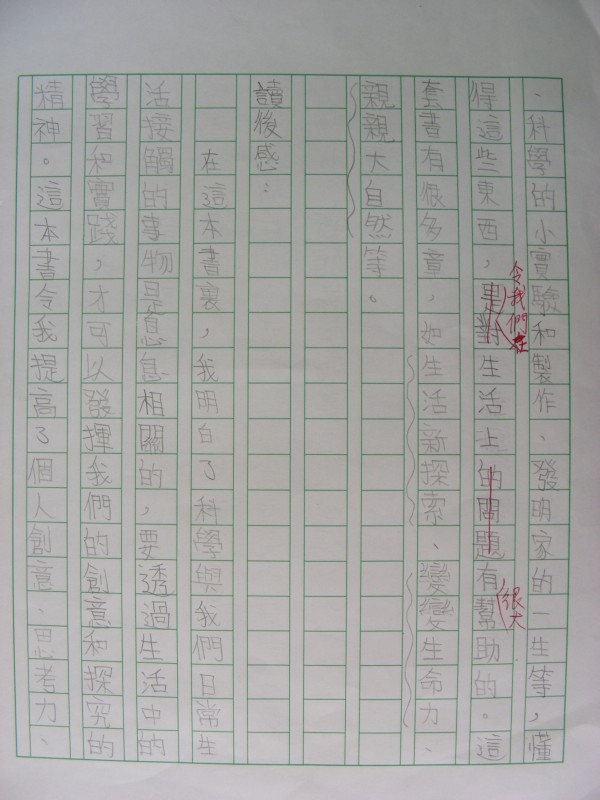 、科學的小實驗和製作、發明家的一生等，懂
令我們在
很大
得這些東西，是對生活上的問題有幫助的。這
套書有很多章，如生活新探索、變變生命力、
親親大自然等。
讀後感：
在這本書裏，我明白了科學與我們日常生
活接觸的事物是息息相關的，要透過生活中的
學習和實踐，才可以發揮我們的創意和探究的
精神。這本書令我提高了個人創意、思考力、